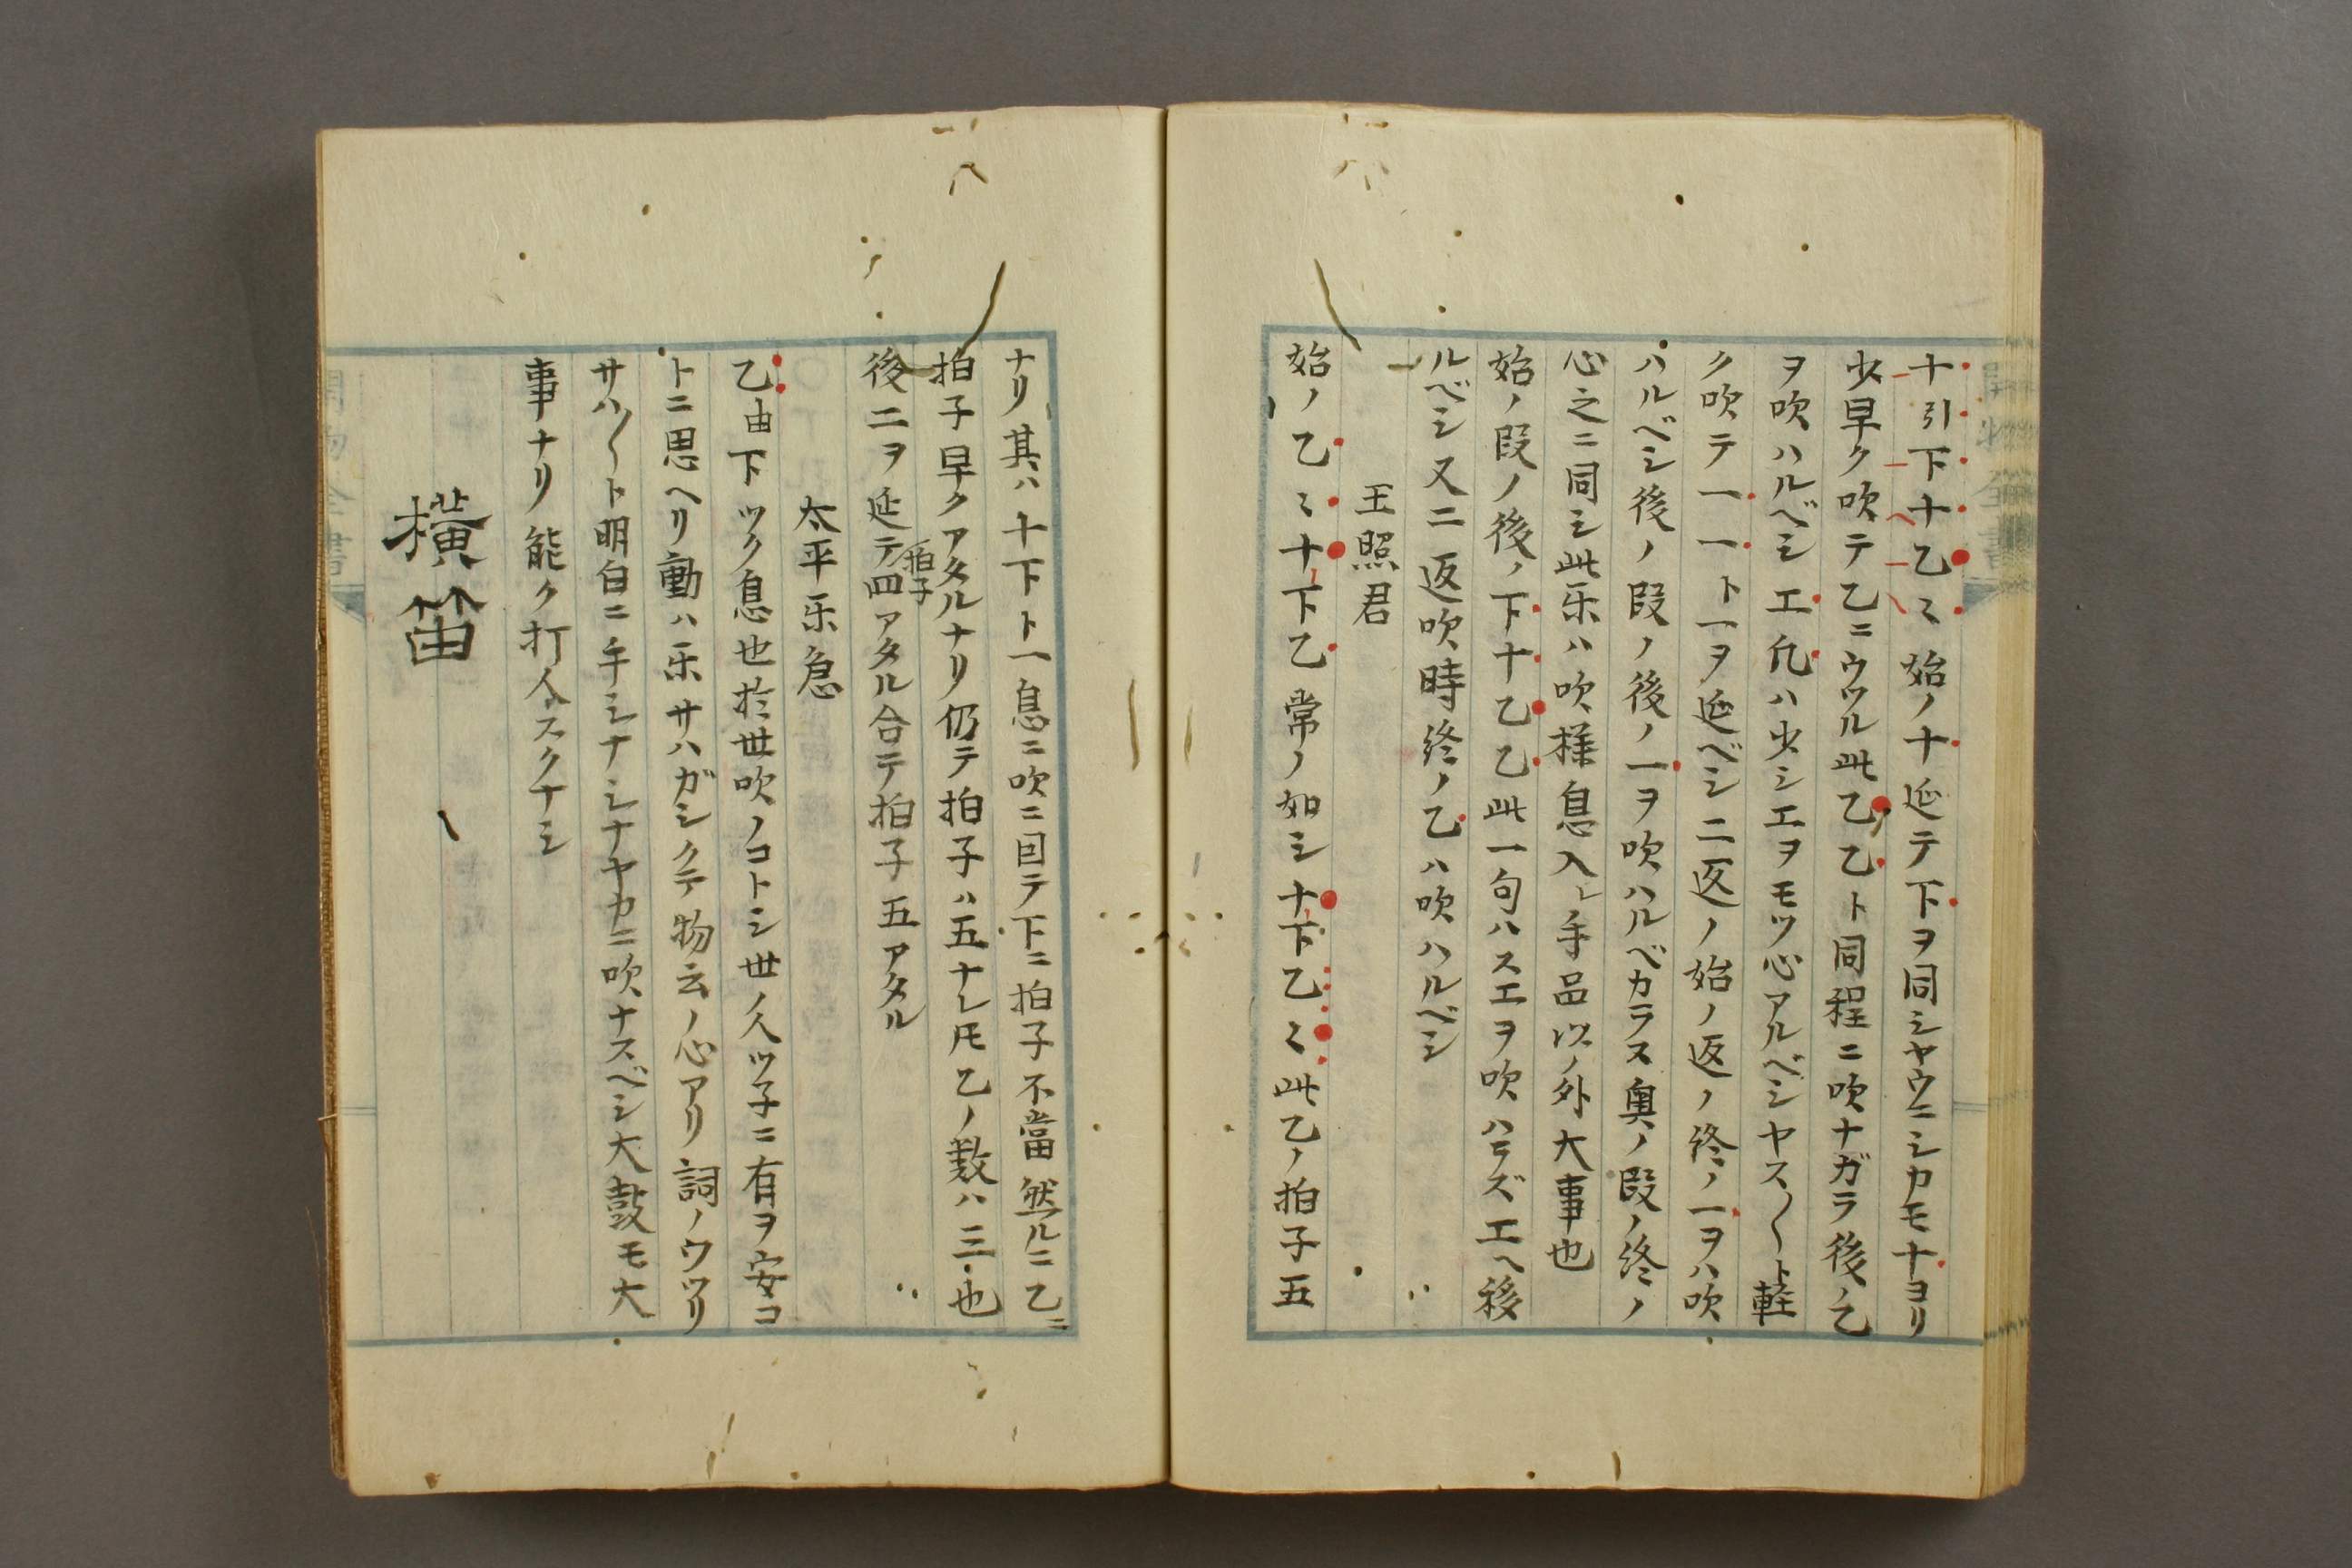 十引下十乙〻始ノ十延テ下ヲ同シヤウニシカモ十ヨリ
少早ク吹テ乙ニウツル此乙乙ト同程ニ吹ナガラ後ノ乙
ヲ吹ハルベシ工凡ハ少シエヲモツ心アルベシヤス〳〵ト軽
ク吹テ一一ト一ヲ延ベシ二返ノ始ノ返ノ終ノ一ヲハ吹
ハルベシ後ノ段ノ後ノ一ヲ吹ハルベカラス奥ノ段ノ終ノ
心之ニ同シ此乐ハ吹様息入レ手品以ノ外大事也
始ノ段ノ後ノ下十乙乙此一句ハスエヲ吹ハラズ工ヘ移
ルベシ又二返吹時終ノ乙ハ吹ハルベシ
王照君
始ノ乙〻十下乙常ノ如シ十下乙〻此乙ノ拍子五
ナリ其ハ十下ト一息ニ吹ニ因テ下ニ拍子不當然ルニ乙ニ
拍子早クアタルナリ仍テ拍子ハ五ナレ𪜈乙ノ数ハ三也
後二ヲ延テ拍子四アタル合テ拍子五アタル
太平乐急
乙由下ツク息也於世吹ノコトシ世ノ人ツ子ニ有ヲ安コ
トニ思ヘリ動ハ乐サハガシクテ物云ノ心アリ詞ノウツリ
サハ〳〵ト明白ニ手シナシナヤカニ吹ナスベシ大鼓モ大
事ナリ能ク打人スクナシ
横笛